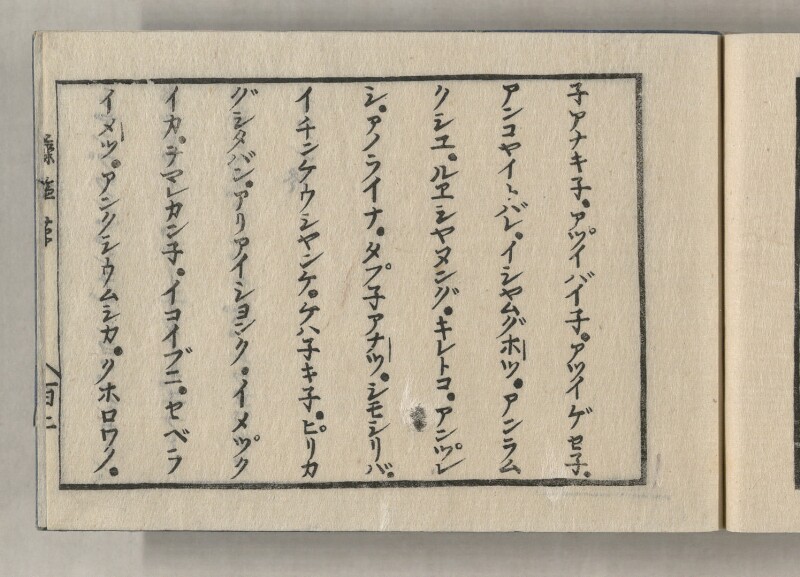 子アナキ子。アツ゚イバイ子。アツイゲセ子。
アンコヤイヽバレ。イシヤムグホツ。アンラム
クシユ。ルヱシヤヌング。キレトコ。アンヅレ
シ。アノライナ。タプ子アナツ。シモシリバ。
イチンケウシヤンケ。ケハ子キ子。ピリカ
グシタバン。アリアイシヨンク。イメツ゚ク
イカ。チマレカン子。イコイブニ。セベラ
イメツ。アンクシウムシカ。クホロワノ。
百二